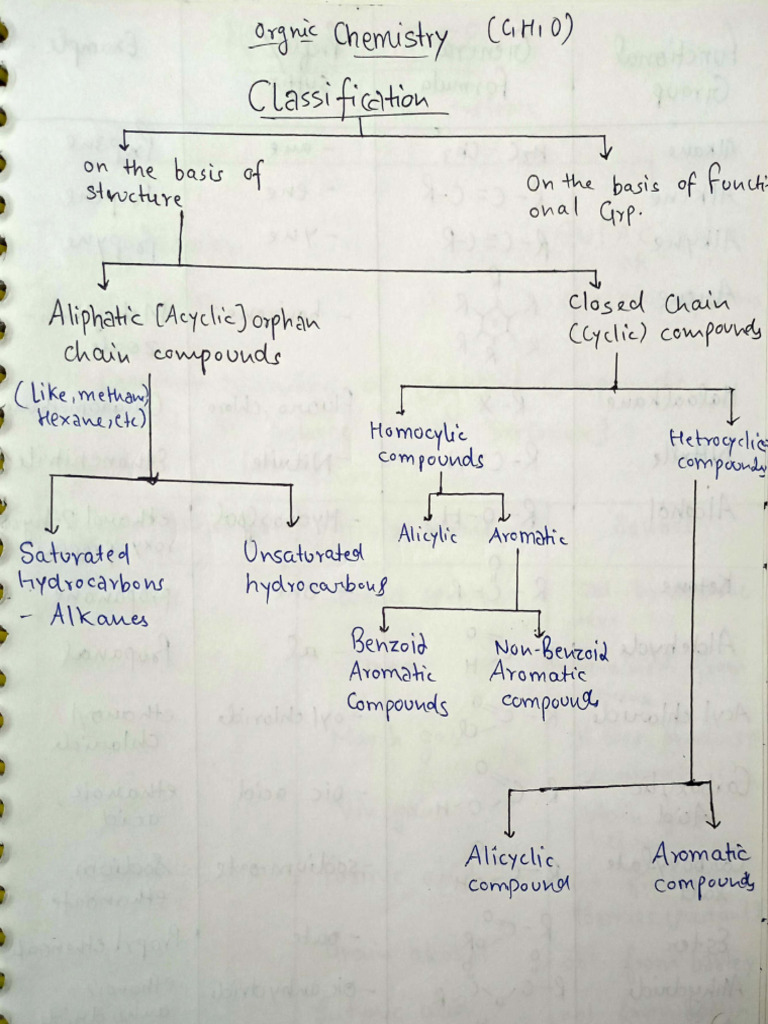 Orgnic Chemistry (C,H,O)
Classification
on the basis of
structure
On the basis of Functi
onal Grp.
Aliphatic [Acyclic] orphan
chain compounds
Closed Chain
(Cyclic) compounds
(Like, methan,
Hexane, etc)
Homocylic
compounds
Hetrocyclic
compounds
Alicylic Aromatic
Saturated
hydrocarbons
- Alkanes
Unsaturated
hydrocarbons
Benzoid
Aromatic
Compounds
Non-Benzoid
Aromatic
compounds
Alicyclic
compound
Aromatic
compounds